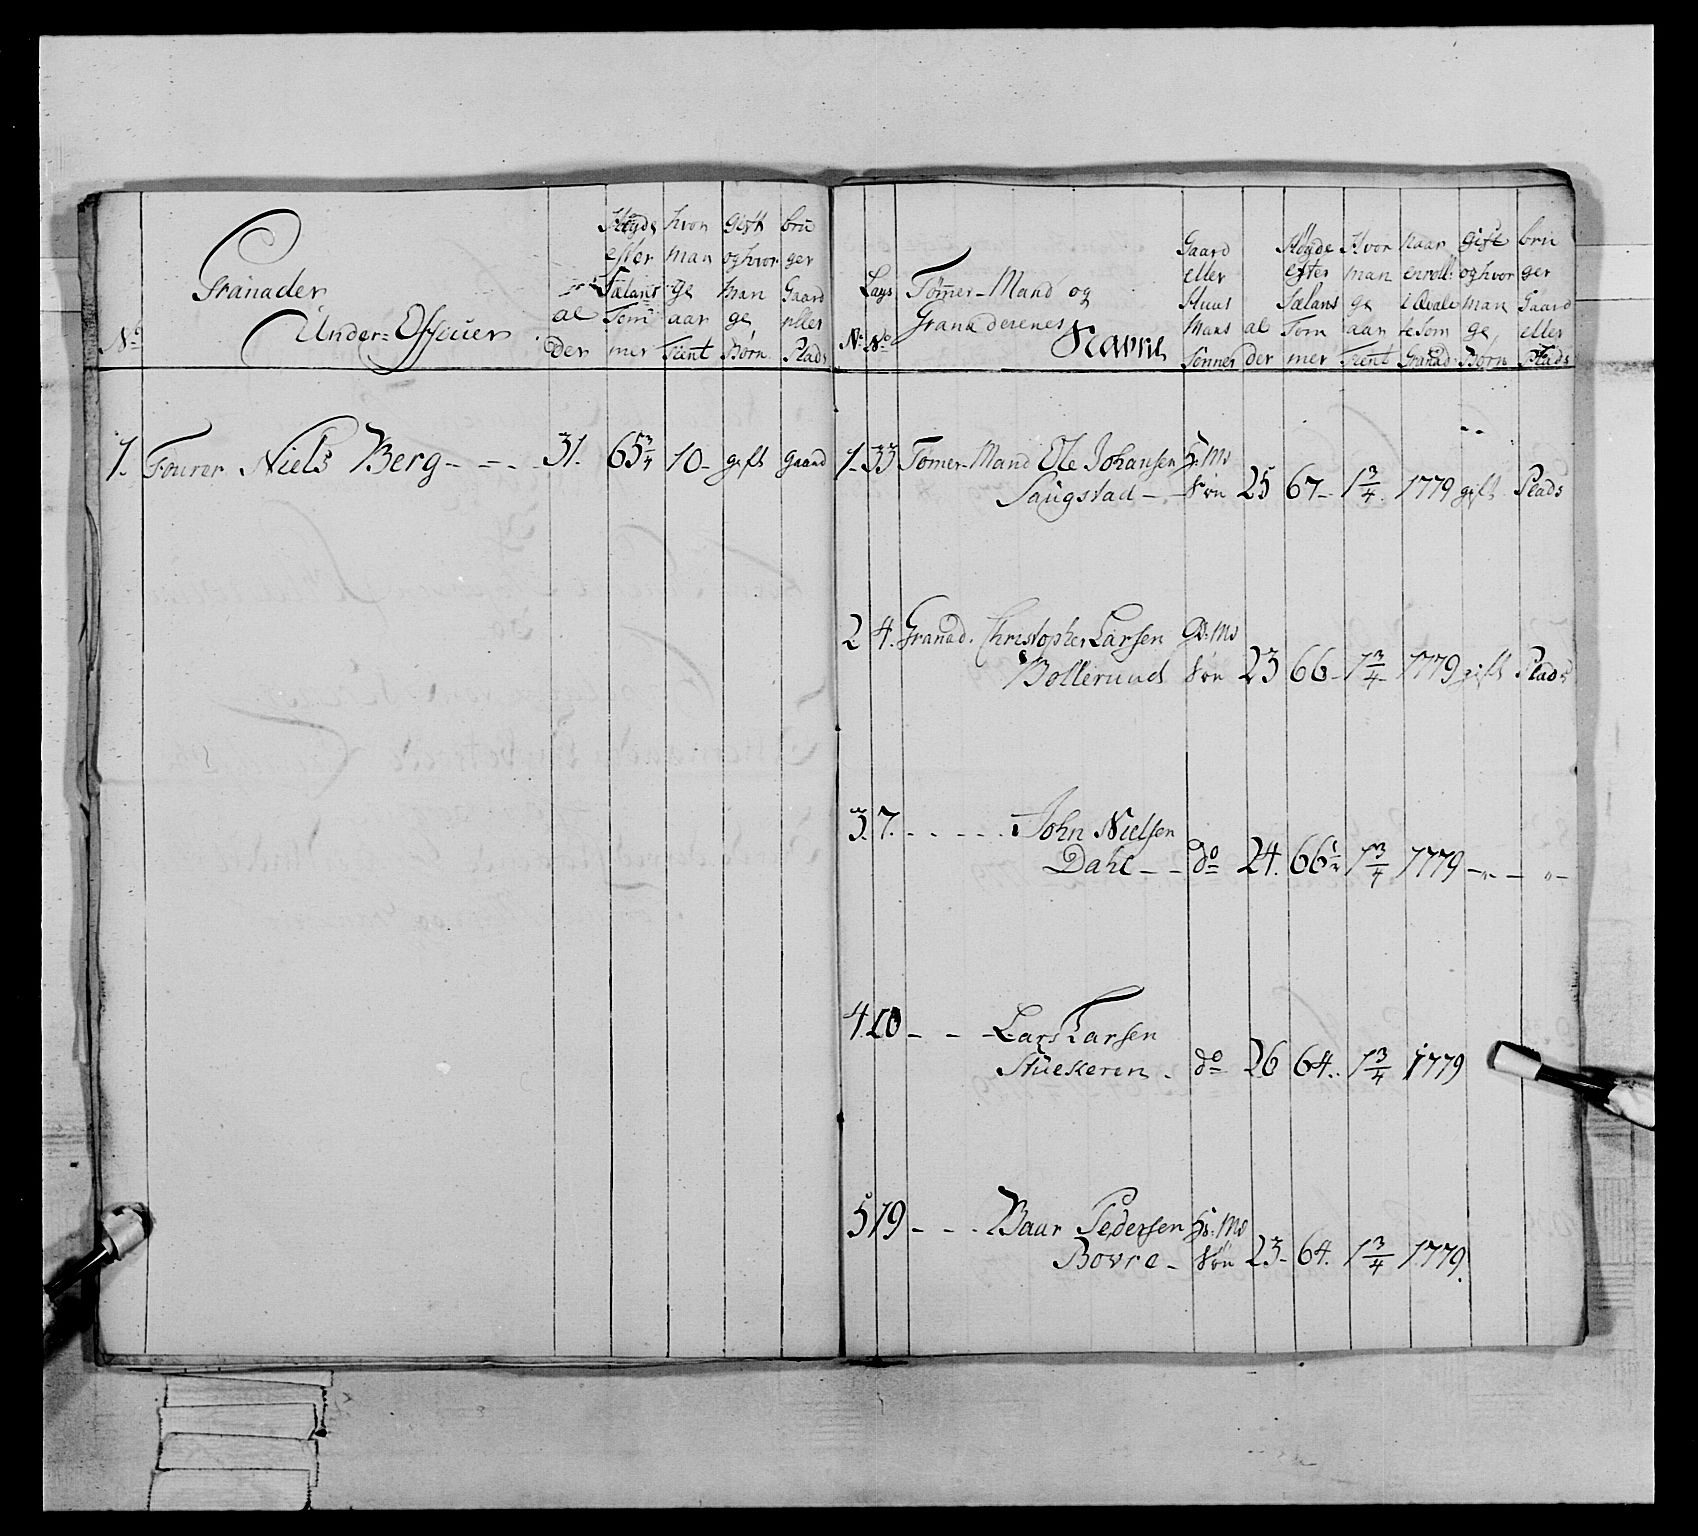 Granader
Under=Officier
No
al
der
Høyde
efter
Sælans
Tom
mer
hvor
man
ge
aar
Tient
Gift
og hvor
man
ge
Børn
bru
ger
Gaard
eller
Plads
1. Fourer Niels Berg - - - 31. 65 3/4 10 - gift gaard
Tømer-Mand og
Granaderenes
Navne
Lags
No No
Gaard
eller
Huus
Mans
Sønner
al
der
Høyde
efter
Sælans
Tom
mer
Hvor
man
ge
aar
Tient
Naar
enroll:
te som
Granad:
gift
og hvor
man
ge,
Børn
bru
ger
Gaard
eller
Plads
1. 33 Tømer-Mand Ole Johansen H: Ms
Saugstad - - Søn 25 67 - 1 3/4 1779 gift Plads
2 4. Granad. Christopher Larsen G: Ms
Bollerund Søn 23 66 - 1 3/4 1779 gift Plads
3. 7. - - - - - John Nielsen
Dahl - - do 24. 66 1/2 1 3/4 1779 - „ - „ -
4. 10 - - - Lars Larsen
Stuekeren - do 26 64. 1 3/4 1779
5 19 - - - Baar Pedersen Hs: Ms
Bovre - Søn 23 - 64. 1 3/4 1779.